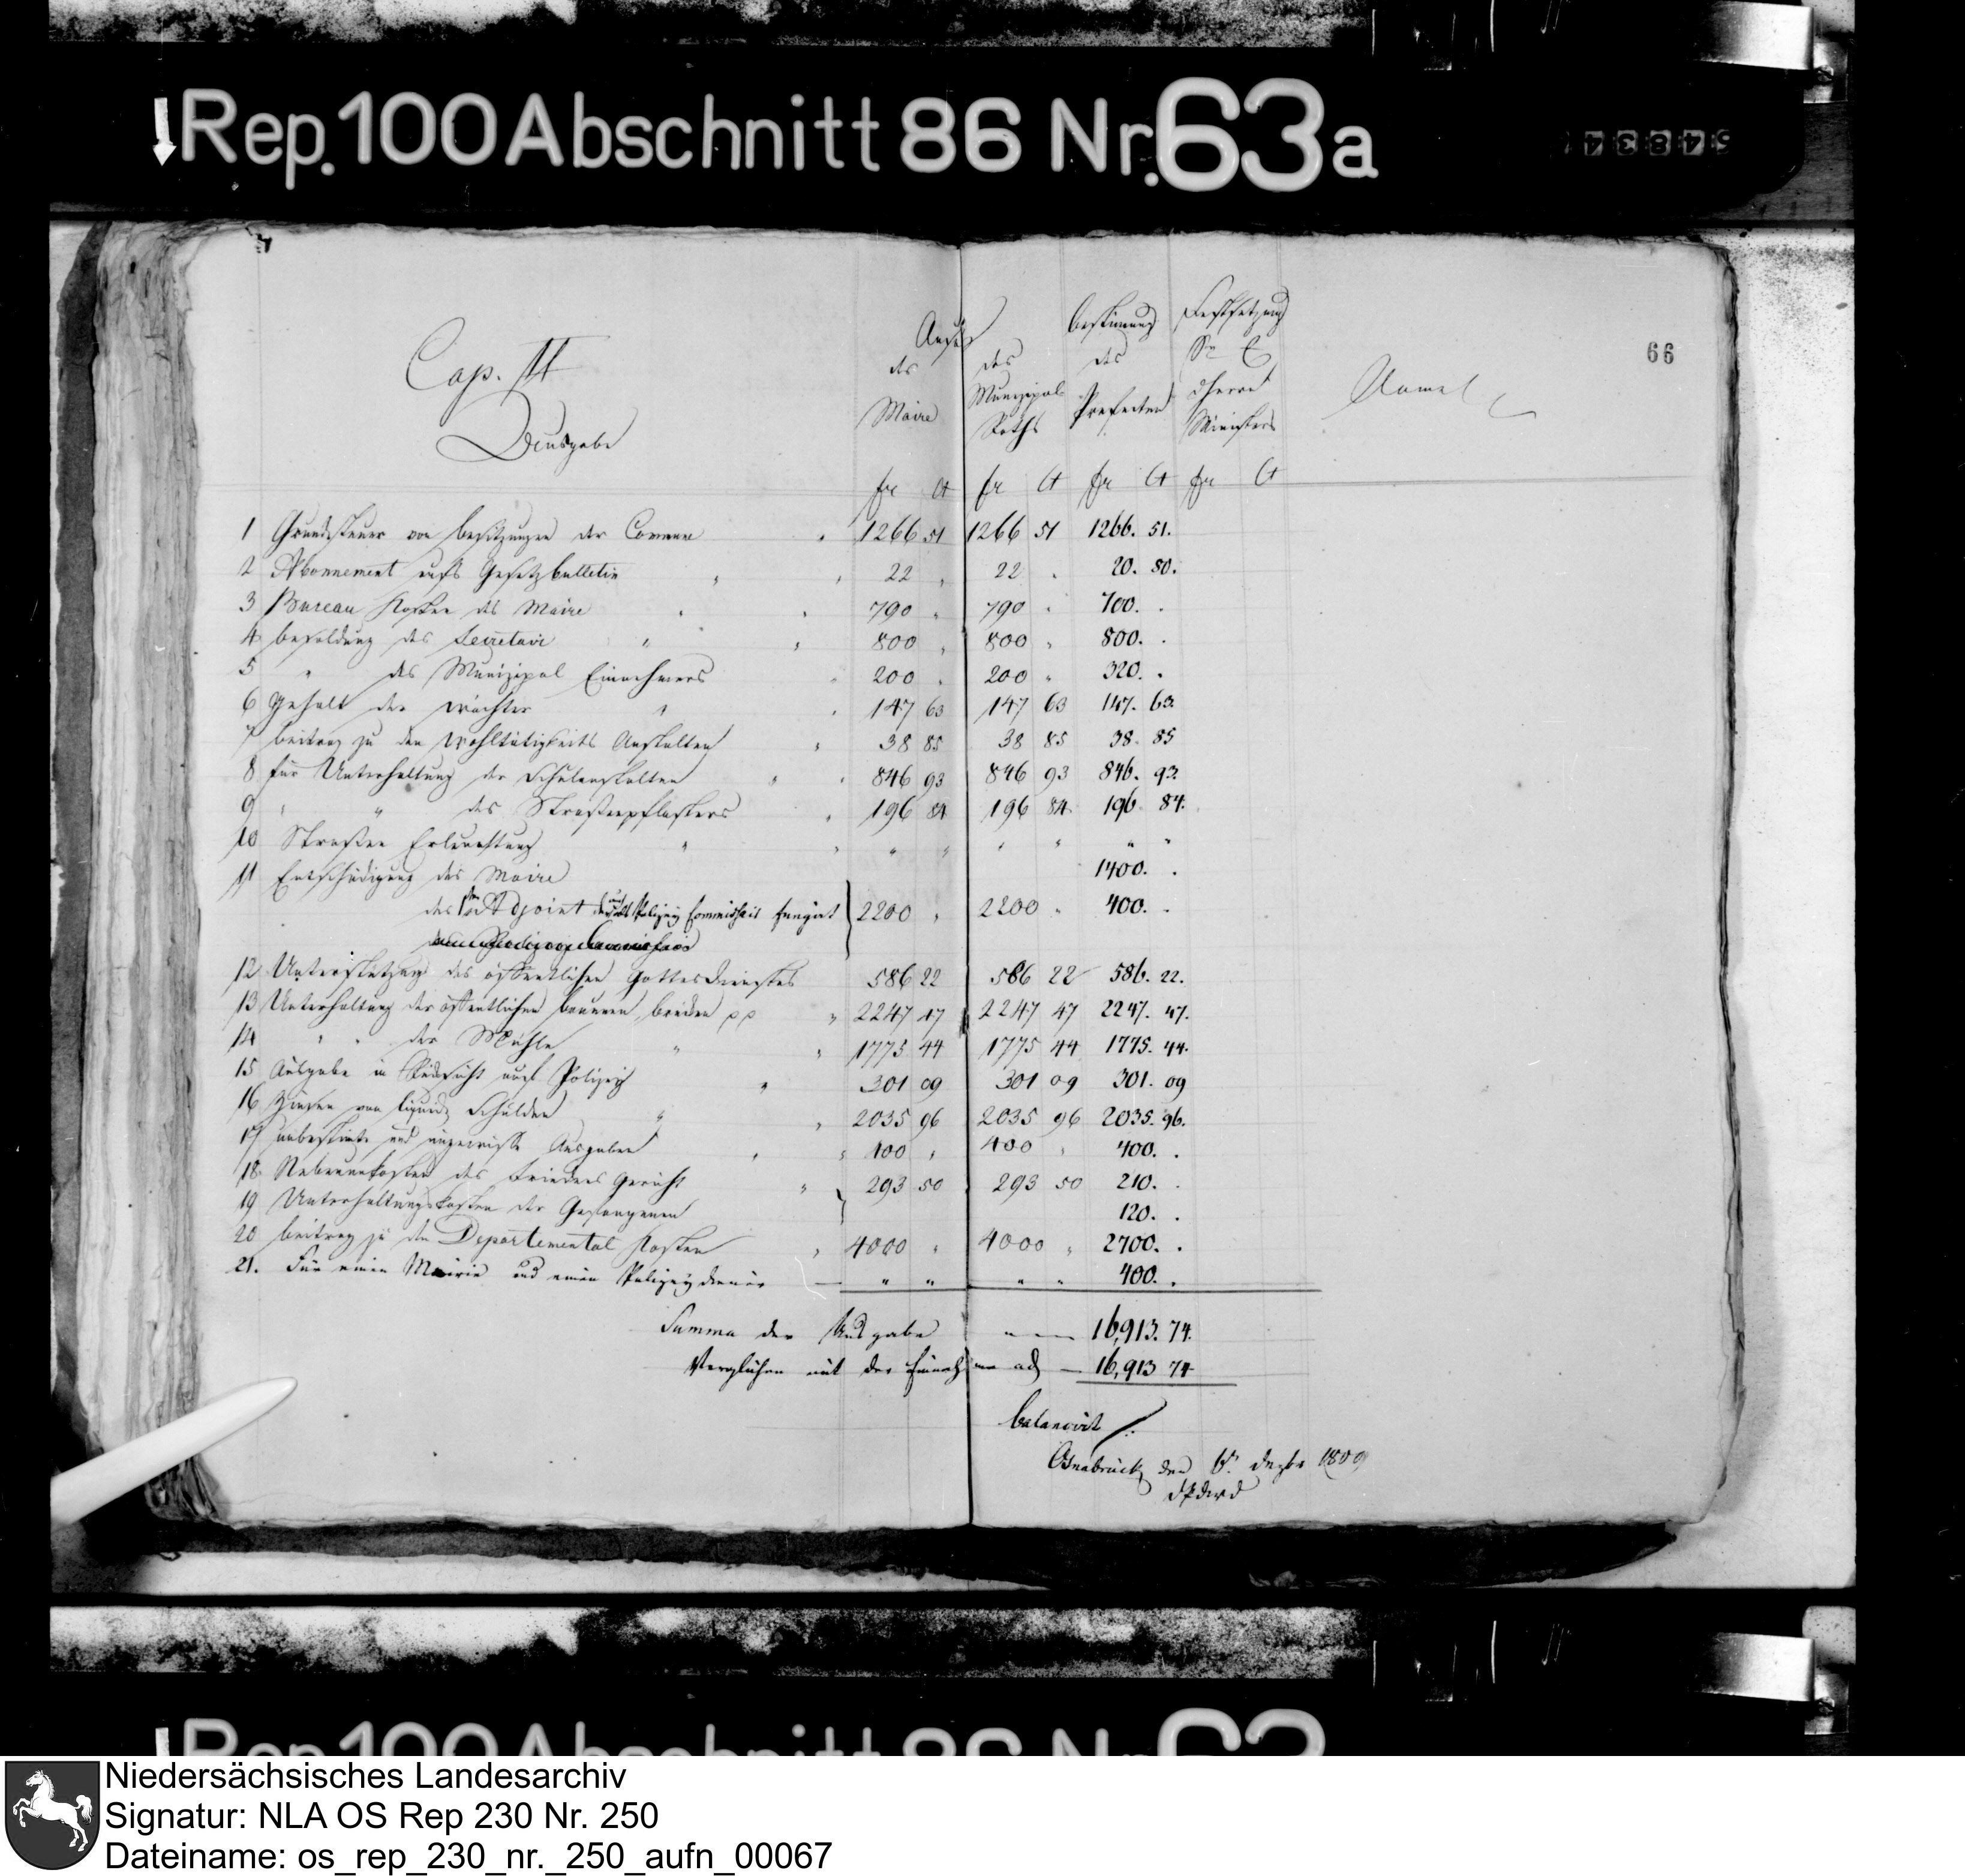 Rep. 100 Abschnitt 86 Nr. 63a
66
Cap. II
Ausgabe
des Maire
des Munizipal Raths
Bestimmung des Praefecten
Festsetzung Sr E d Herrn Ministers
fr Ct fr Ct fr Ct fr Ct
1 Grundsteuer von Besitzungen der Commune 1266 51 1266 51 1266. 51.
2 Abonnement aufs Gesetzbulletin 22 22 20. 80.
3 Bureau Kosten des Maire 790 790 700.
4 Besoldung des Secretair 800 800 800.
5 " des Munizipal Einnehmers 200 200 320.
6 Gehalt der Wächter 147 63 147 63 147. 63.
7 Beitrag zu den Wohltätigkeits Anstalten 38 85 38 85 38. 85
8 Für Unterhaltung der Schulanstalten 846 93 846 93 846. 93.
9 " " des Straßenpflasters 196 84 196 84 196. 84.
10 Straßen Erleuchtung " " " " " "
11 Entschädigung des Maire 1400.
des Adjoint Polizey Commissair fungirt 2200 2200 400.
12 Unterstützung des öffentlichen Gottesdienstes 586 22 586 22 586. 22.
13 Unterhaltung der öffentlichen Brunnen, Brücken pp 2247 47 2247 47 2247. 47.
14 " " der Mühle 1775 44 1775 44 1775. 44.
15 Ausgabe in Rücksicht auf Polizey 301 09 301 09 301. 09
16 Zinsen von liquid Schulden 2035 96 2035 96 2035. 96.
17 unbestimte und ungewisse Ausgaben 400 400 400.
18 Nebenkosten des Friedens Gericht 293 50 293 50 210.
19 Unterhaltungskosten der Gefangenen 120.
20 Beitrag zu den Departemental Kosten 4000 4000 2700.
21. Für einen Mairie und einen Polizeydiener " " " " 400.
Summa der Ausgabe 16,913. 74.
Verglichen mit der Einnahme ad 16,913 74
balancirt
Osnabrück den 6. Dezbr 1809
Rep. 100 Abschnitt 86 Nr. 63
Niedersächsisches Landesarchiv
Signatur: NLA OS Rep 230 Nr. 250
Dateiname: os_rep_230_nr._250_aufn_00067